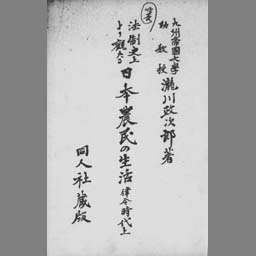 九州帝國大學
助教授 瀧川政次郎著
法制史上
より觀たる
日本農民の生活 律令時代上
同人社藏版